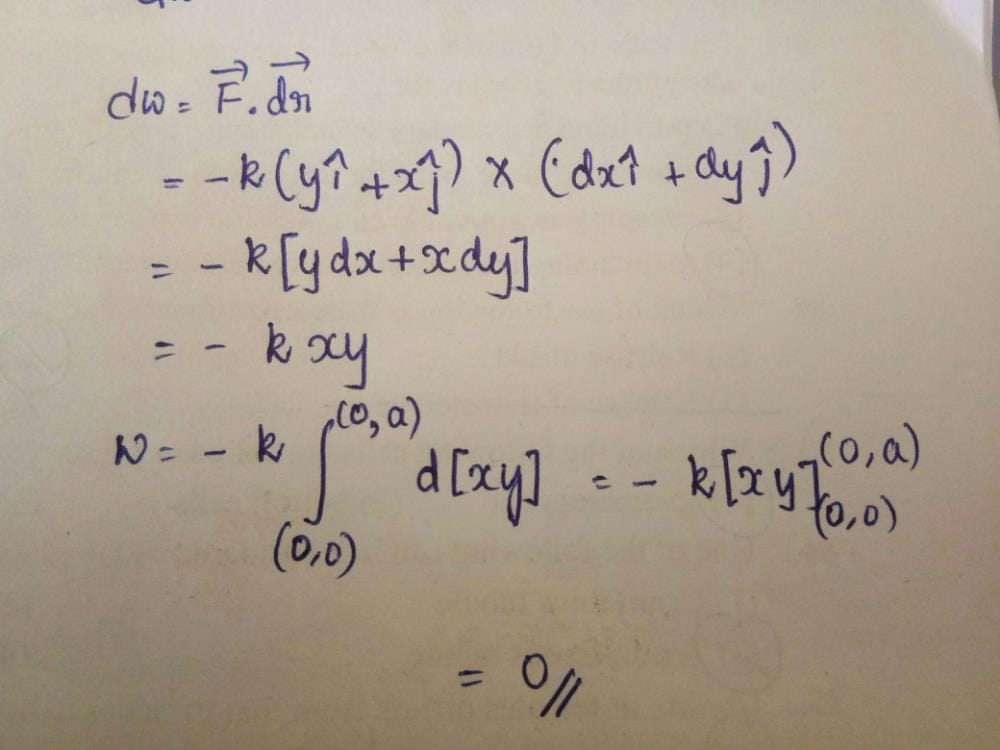 dw = F⃗ . dr⃗
= - k (yî + xĵ) × (dxî + dyĵ)
= - k [y dx + x dy]
= - k xy
W = - k ∫(0,0)^(0,a) d[xy] = - k [xy](0,0)^(0,a)
= 0//